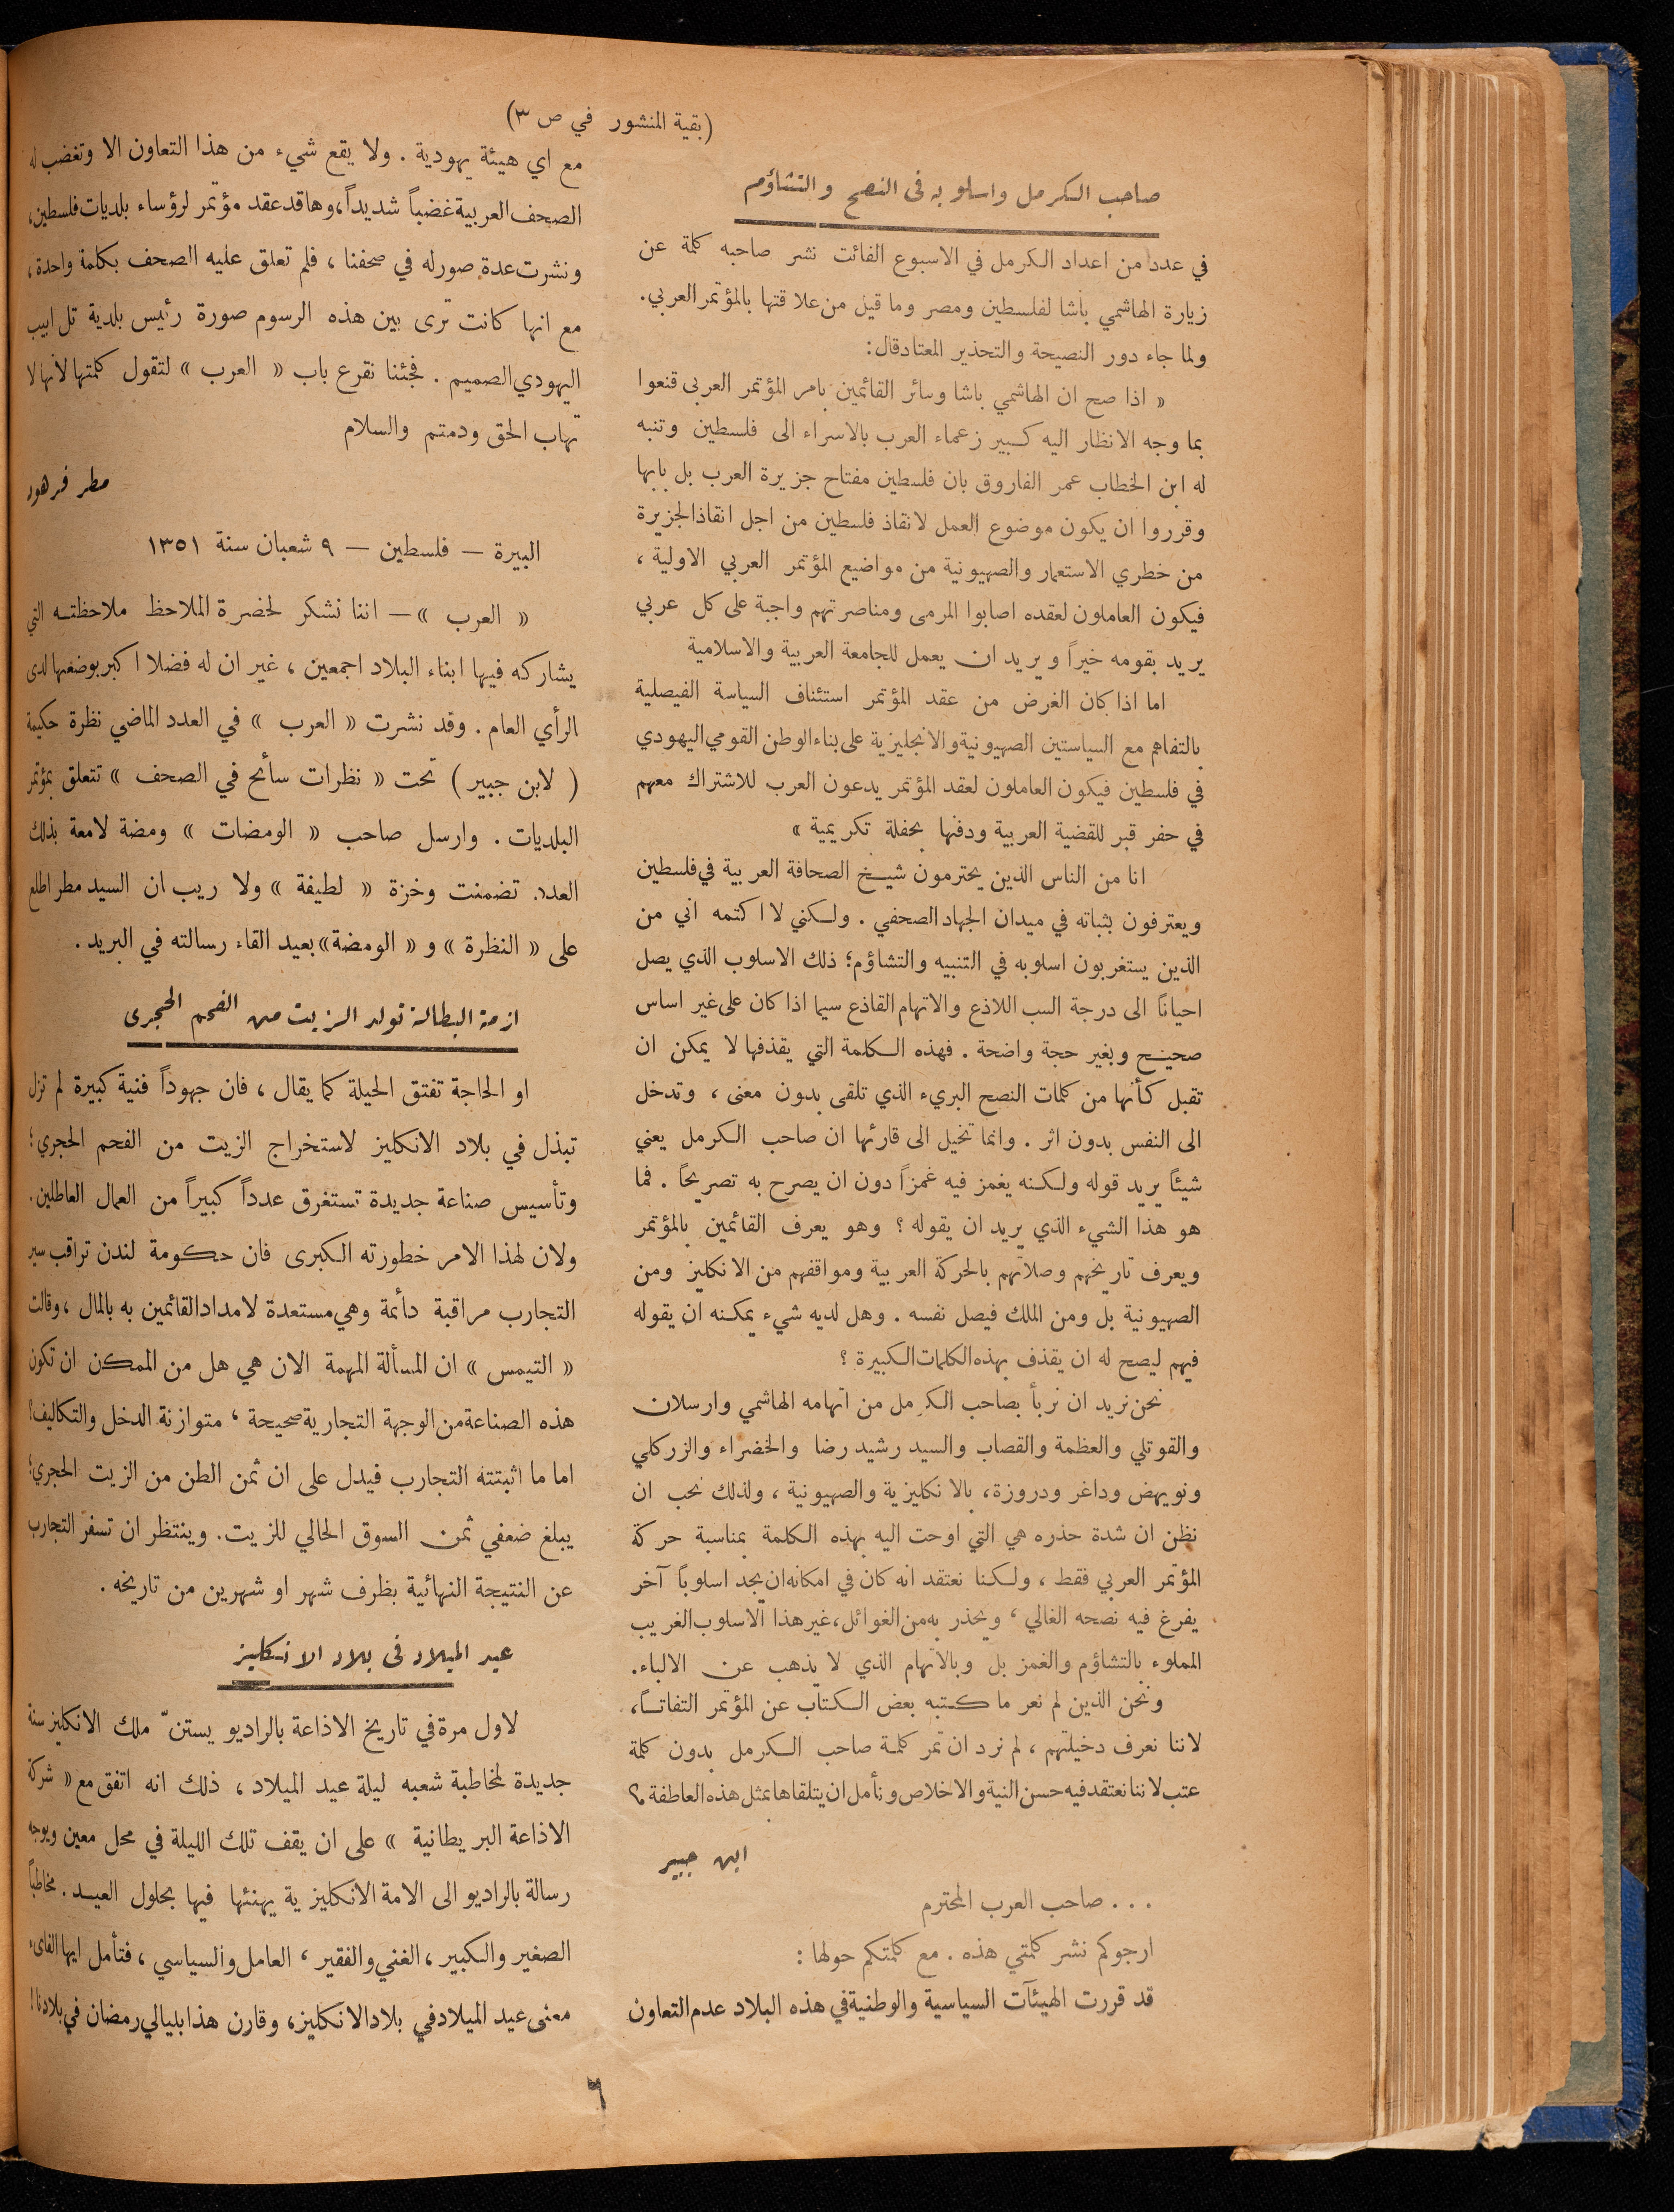 (بقية المنشور في ص ٣)
صاحب الكرمل واسلوبه في النصح والتشاؤم
في عدد من اعداد الكرمل في الاسبوع الفائت نشر صاحبه كلمة عن
زيارة الهاشمي باشا لفلسطين ومصر وما قيل من علاقتها بالمؤتمر العربي.
ولما جاء دور النصيحة والتحذير المعتاد قال:
« اذا صح ان الهاشمي باشا وسائر القائمين بامر المؤتمر العربي قنعوا
بما وجه الانظار اليه كبير زعماء العرب بالاسراء الى فلسطين وتنبه
له ابن الخطاب عمر الفاروق بان فلسطين مفتاح جزيرة العرب بل بابها
وقرروا ان يكون موضوع العمل لانقاذ فلسطين من اجل انقاذ الجزيرة
من خطري الاستعمار والصهيونية من مواضيع المؤتمر العربي الاولية ،
فيكون العاملون لعقده اصابوا المرمى ومناصرتهم واجبة على كل عربي
يريد بقومه خيراً ويريد ان يعمل للجامعة العربية والاسلامية
اما اذا كان الغرض من عقد المؤتمر استئناف السياسة الفيصلية
بالتفاهم مع السياستين الصهيونية والانجليزية على بناء الوطن القومي اليهودي
في فلسطين فيكون العاملون لعقد المؤتمر يدعون العرب للاشتراك معهم
في حفر قبر للقضية العربية ودفنها بحفلة تكريمية »
انا من الناس الذين يحترمون شيخ الصحافة العربية في فلسطين
ويعترفون بثباته في ميدان الجهاد الصحفي . ولكني لا اكتمه اني من
الذين يستغربون اسلوبه في التنبيه والتشاؤم؛ ذلك الاسلوب الذي يصل
احيانًا الى درجة السب اللاذع والاتهام القاذع سيما اذا كان على غير اساس
صحيح وبغير حجة واضحة . فهذه الكلمة التي يقذفها لا يمكن ان
تقبل كأنها من كلمات النصح البريء الذي تلقى بدون معنى ، وتدخل
الى النفس بدون اثر . وانما تخيل الى قارئها ان صاحب الكرمل يعني
شيئاً يريد قوله ولكنه يغمز فيه غمزاً دون ان يصرح به تصريحاً . فما
هو هذا الشيء الذي يريد ان يقوله ؟ وهو يعرف القائمين بالمؤتمر
ويعرف تاريخهم وصلاتهم بالحركة العربية ومواقفهم من الانكليز ومن
الصهيونية بل ومن الملك فيصل نفسه . وهل لديه شيء يمكنه ان يقوله
فيهم ليصح له ان يقذف بهذه الكلمات الكبيرة ؟
نحن نريد ان نربأ بصاحب الكرمل من اتهامه الهاشمي وارسلان
والقوتلي والعظمة والقصاب والسيد رشيد رضا والخضراء والزركلي
ونويهض وداغر ودروزة، بالانكليزية والصهيونية ، ولذلك نحب ان
نظن ان شدة حذره هي التي اوحت اليه بهذه الكلمة بمناسبة حركة
المؤتمر العربي فقط ، ولكنا نعتقد انه كان في امكانه ان يجد اسلوباً آخر
يفرغ فيه نصحه الغالي ، ويحذر به من الغوائل، غير هذا الاسلوب الغريب
المملوء بالتشاؤم والغمز بل وبالاتهام الذي لا يذهب عن الالباء.
ونحن الذين لم نعر ما كتبه بعض الكتاب عن المؤتمر التفاتاً،
لاننا نعرف دخيلتهم ، لم نرد ان تمر كلمة صاحب الكرمل بدون كلمة
عتب لاننا نعتقد فيه حسن النية والاخلاص ونأمل ان يتلقاها بمثل هذه العاطفة م؟
ابن جبير
. . . صاحب العرب المحترم
ارجوكم نشر كلمتي هذه . مع كلمتكم حولها :
قد قررت الهيئآت السياسية والوطنية في هذه البلاد عدم التعاون
مع اي هيئة يهودية . ولا يقع شيء من هذا التعاون الا وتغضب له
الصحف العربية غضباً شديداً، وها قد عقد مؤتمر لرؤساء بلديات فلسطين،
ونشرت عدة صور له في صحفنا ، فلم تعلق عليه الصحف بكلمة واحدة،
مع انها كانت ترى بين هذه الرسوم صورة رئيس بلدية تل ابيب
اليهودي الصميم . فجئنا نقرع باب « العرب » لتقول كلمتها لانها لا
تهاب الحق ودمتم والسلام
مطر فرهود
البيرة — فلسطين — ٩ شعبان سنة ١٣٥١
« العرب » — اننا نشكر لحضرة الملاحظ ملاحظته التي
يشاركه فيها ابناء البلاد اجمعين ، غير ان له فضلا اكبر بوضعها لدى
الرأي العام . وقد نشرت « العرب » في العدد الماضي نظرة حكيمة
( لابن جبير ) تحت « نظرات سائح في الصحف » تتعلق بمؤتمر
البلديات . وارسل صاحب « الومضات » ومضة لامعة بذلك
العدد. تضمنت وخزة « لطيفة » ولا ريب ان السيد مطر اطلع
على « النظرة » و « الومضة » بعيد القاء رسالته في البريد .
ازمة البطالة تولد الزيت من الفحم الحجري
او الحاجة تفتق الحيلة كما يقال ، فان جهوداً فنية كبيرة لم تزل
تبذل في بلاد الانكليز لاستخراج الزيت من الفحم الحجري؛
وتأسيس صناعة جديدة تستغرق عدداً كبيراً من العمال العاطلين.
ولان لهذا الامر خطورته الكبرى فان حكومة لندن تراقب سير
التجارب مراقبة دائمة وهي مستعدة لامداد القائمين به بالمال ، وقالت
« التيمس » ان المسألة المهمة الان هي هل من الممكن ان تكون
هذه الصناعة من الوجهة التجارية صحيحة ، متوازنة الدخل والتكاليف؟
اما ما اثبتته التجارب فيدل على ان ثمن الطن من الزيت الحجري؛
يبلغ ضعفي ثمن السوق الحالي للزيت. وينتظر ان تسفر التجارب
عن النتيجة النهائية بظرف شهر او شهرين من تاريخه .
عيد الميلاد في بلاد الانكليز
لاول مرة في تاريخ الاذاعة بالراديو يستنّ ملك الانكليز سنة
جديدة لمخاطبة شعبه ليلة عيد الميلاد ، ذلك انه اتفق مع « شركة
الاذاعة البريطانية » على ان يقف تلك الليلة في محل معين ويوجه
رسالة بالراديو الى الامة الانكليزية يهنئها فيها بحلول العيد . مخاطباً
الصغير والكبير ، الغني والفقير ، العامل والسياسي ، فتأمل ايها القاىء
معنى عيد الميلاد في بلاد الانكليز، وقارن هذا بليالي رمضان في بلادنا !
٦